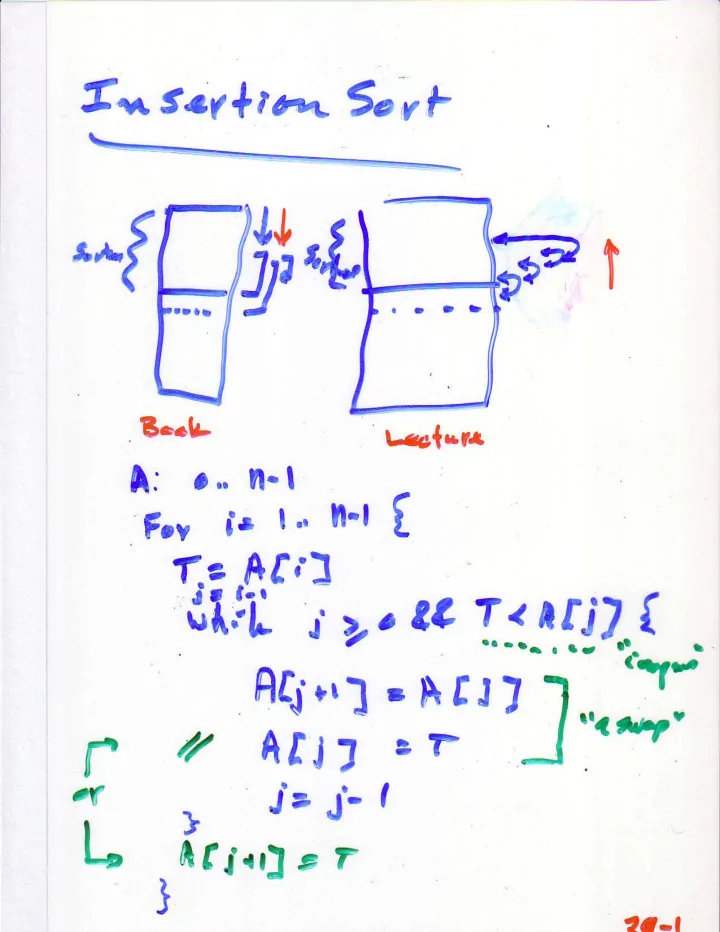 Insertion Sort
Sorted
Sorted
Book
Lecture
A: 0.. n-1
For i= 1.. n-1 {
T= A[i]
j= i-1
while j ≥ 0 && T < A[j] {
"compare"
A[j+1] = A[j]
"a swap"
// A[j] = T
or
j= j-1
}
A[j+1] = T
}